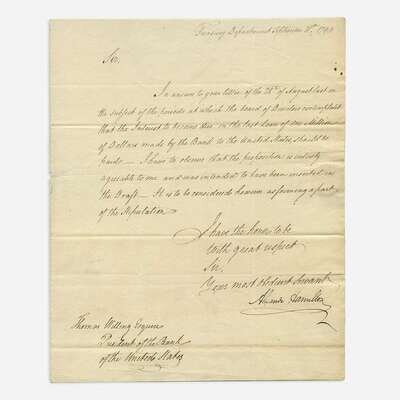 Treasury Department
Sir,
In answer to your letter of the 28th of August last on
the subject of the periods at which the board of Directors contemplate
that the Interest to become due on the last loan of one Million
of Dollars made by the Bank to the United States, should be
paid — I have to observe that the proposition is entirely
agreeable to me and was intended to have been inserted in
the Draft — It is to be considered however as forming a part
of the Stipulation
I have the honor to be
with great respect
Sir,
Your most Obedient Servant
Hamilton
Thomas Willing Esquire
President of the Bank
of the United States